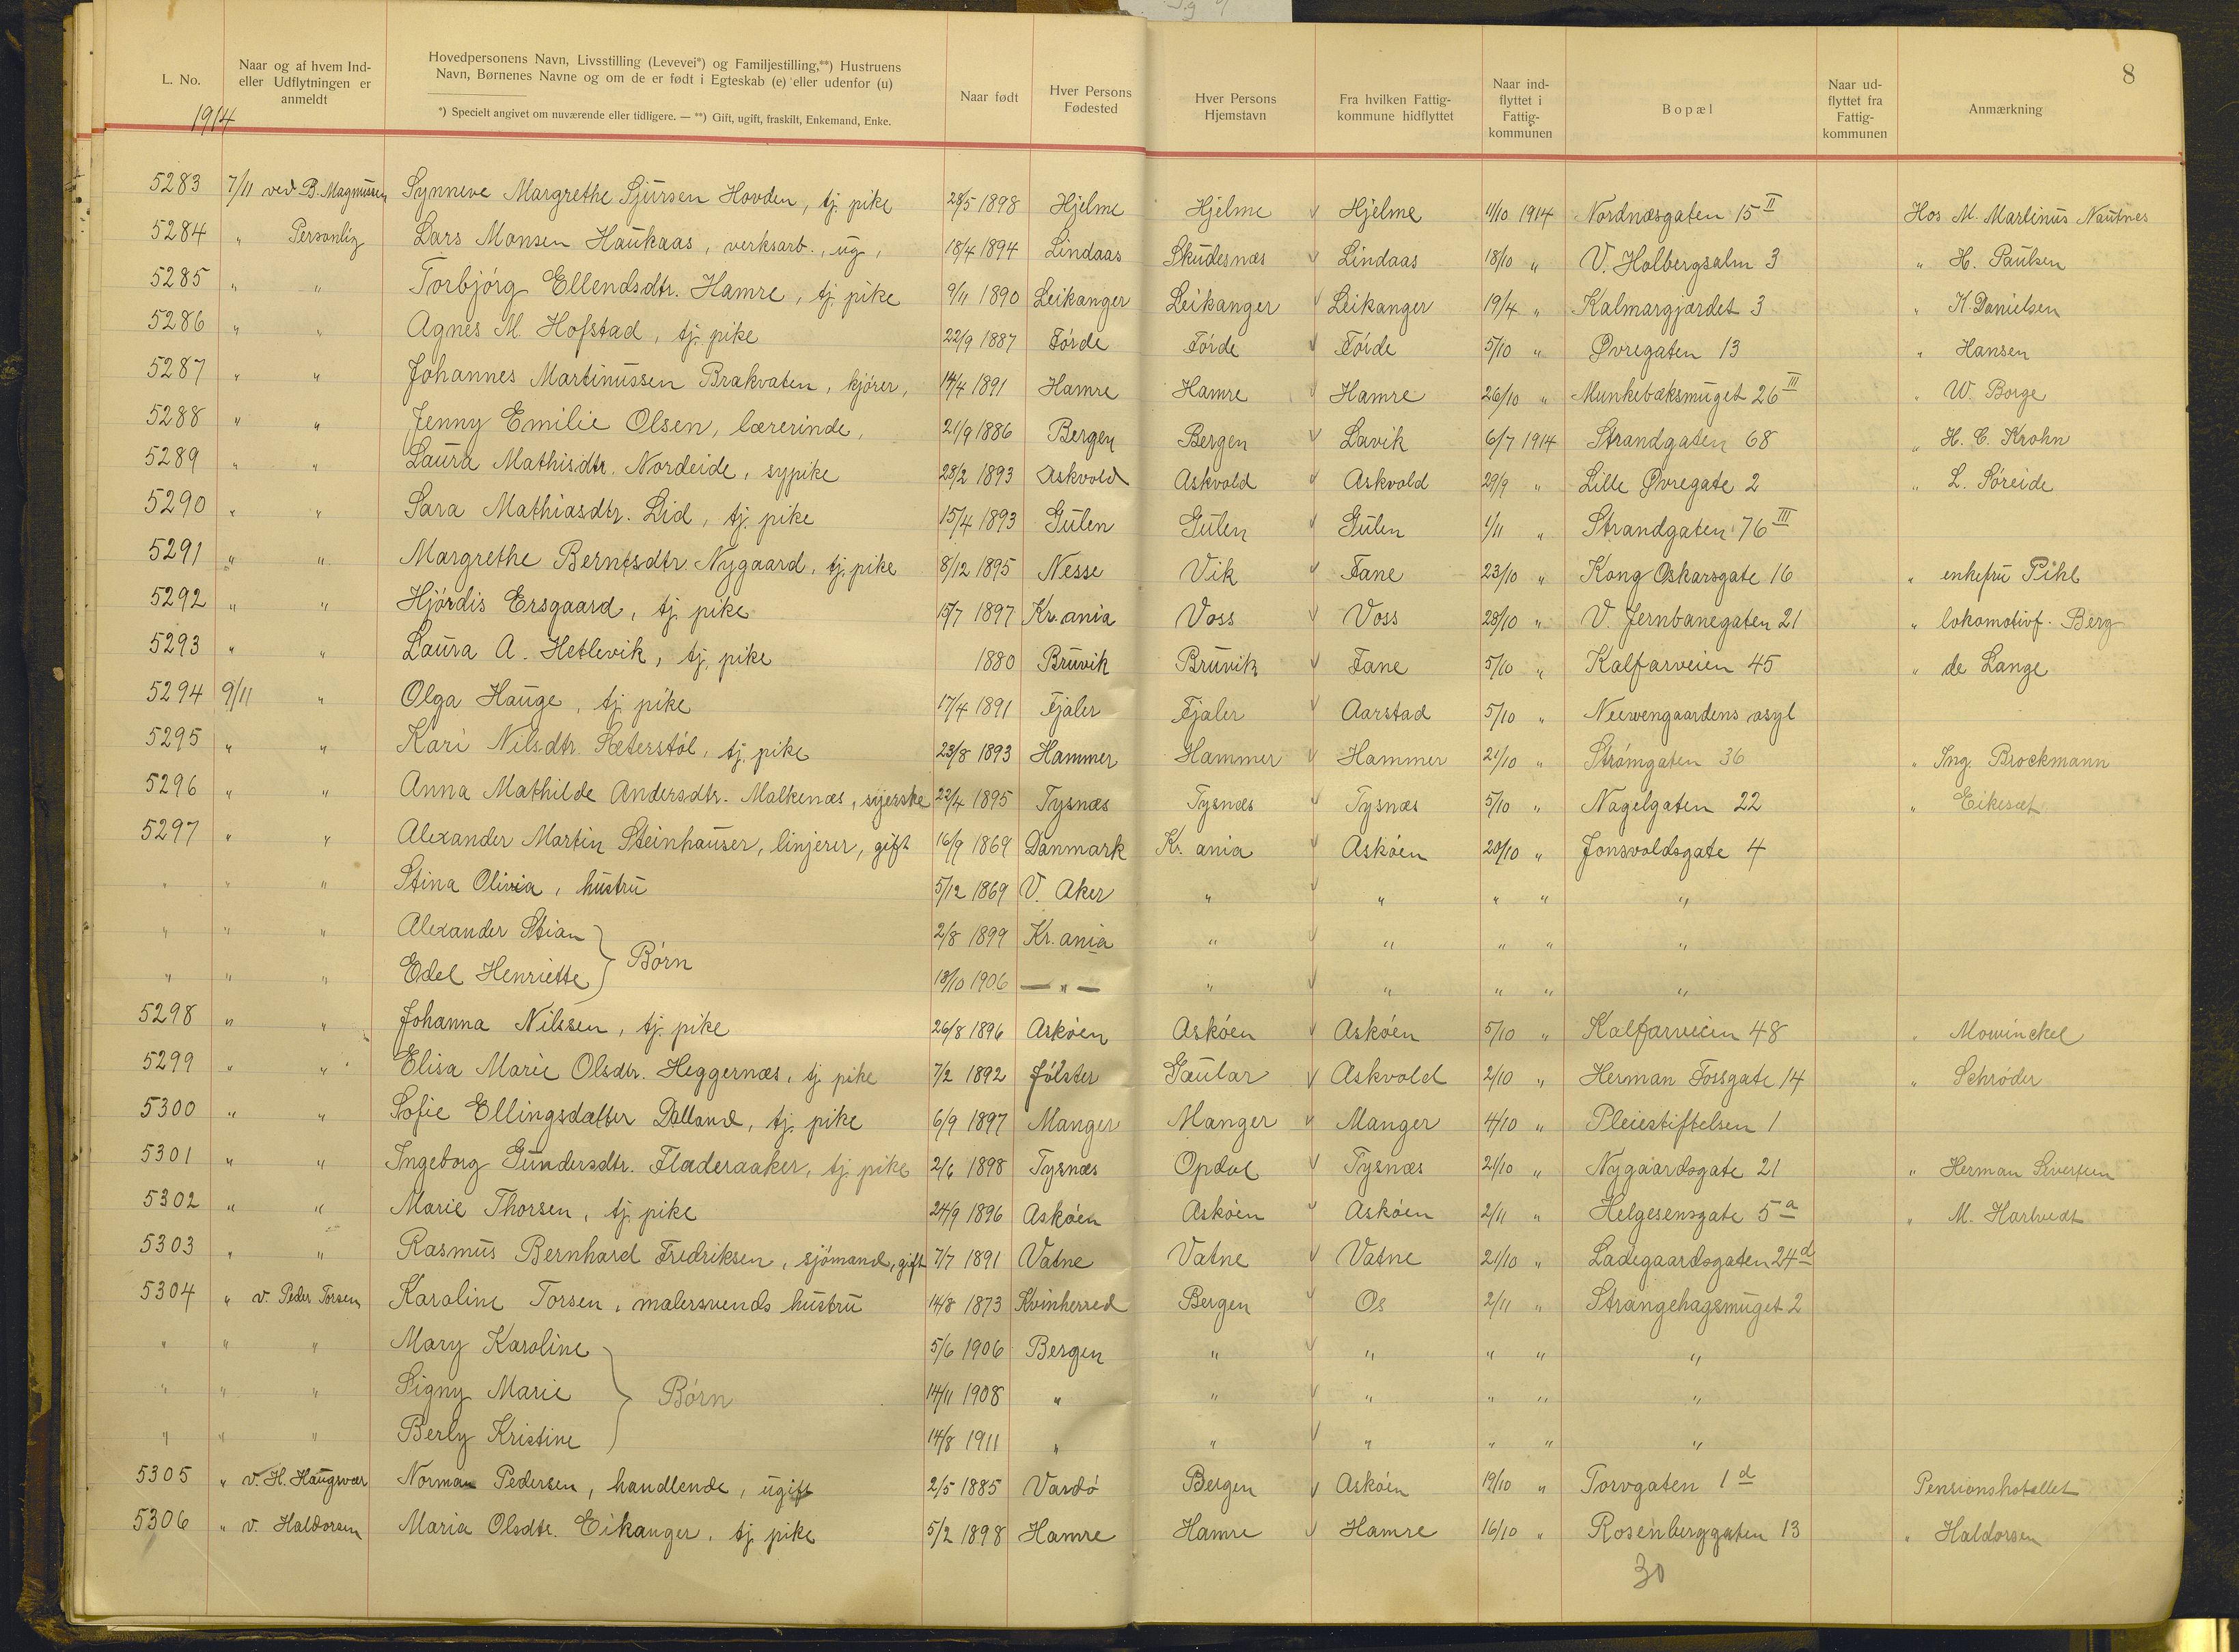 8
L. No. | Naar og af hvem Ind- eller Udflytningen er anmeldt | Hovedpersonens Navn, Livsstilling (Levevei*) og Familjestilling,**) Hustruens Navn, Børnenes Navne og om de er født i Egteskab (e) eller udenfor (u) | Naar født | Hver Persons Fødested | Hver Persons Hjemstavn | Fra hvilken Fattig-kommune hidflyttet | Naar ind-flyttet i Fattig-kommunen | Bopæl | Naar ud-flyttet fra Fattig-kommunen | Anmærkning
*) Specielt angivet om nuværende eller tidligere. — **) Gift, ugift, fraskilt, Enkemand, Enke.
1914
5283 7/11 ved B. Magnussen Synneve Margrethe Sjursen Hovden, tj. pike 28/5 1898 Hjelme Hjelme √ Hjelme 11/10 1914 Nordnæsgaten 15 II Hos M. Martinus Nautnes
5284 " Personlig Lars Monsen Haukaas, verksarb., ug, 18/4 1894 Lindaas Skudesnæs √ Lindaas 18/10 " V. Holbergsalm 3 " H. Paulsen
5285 " " Torbjórg Ellendsdtr. Hamre, tj. pike 9/11 1890 Leikanger Leikanger √ Leikanger 19/4 " Kalmargjærdet 3 " K. Danielsen
5286 " " Agnes M. Hofstad, tj. pike 22/9 1887 Fórde Fórde √ Fórde 5/10 " Øvregaten 13 " Hansen
5287 " " Johannes Martinussen Brakvaten, kjórer, 14/4 1891 Hamre Hamre √ Hamre 26/10 " Munkebæksmuget 26 III " W. Borge
5288 " " Jenny Emilie Olsen, lærerinde, 21/9 1886 Bergen Bergen √ Lavik 6/7 1914 Strandgaten 68 " H. C. Krohn
5289 " " Laura Mathisdtr. Nordeide, sypike 28/2 1893 Askvold Askvold √ Askvold 29/9 " Lille Øvregate 2 " L. Sóreide
5290 " " Sara Mathiasdtr. Lid, tj. pike 15/4 1893 Gulen Gulen √ Gulen 1/11 " Strandgaten 76 III
5291 " " Margrethe Berntsdtr. Nygaard, tj. pike 8/12 1895 Nesse Vik √ Fane 23/10 " Kong Oskarsgate 16 " enkefru Pihl
5292 " " Hjórdis Ersgaard, tj. pike 15/7 1897 Kr.ania Voss √ Voss 28/10 " V. Jernbanegaten 21 " lokomotivf. Berg
5293 " " Laura A. Hetlevik, tj. pike 1880 Bruvik Bruvik √ Fane 5/10 " Kalfarveien 45 " de Lange
5294 9/11 " Olga Hauge, tj. pike 17/4 1891 Fjaler Fjaler √ Aarstad 5/10 " Neewengaardens asyl
5295 " " Kari Nilsdtr. Sæterstól, tj. pike 23/8 1893 Hammer Hammer √ Hammer 21/10 " Strómgaten 36 " Ing. Brockmann
5296 " " Anna Mathilde Andersdtr. Malkenæs, syerske 22/4 1895 Tysnæs Tysnæs √ Tysnæs 5/10 " Nagelgaten 22 " Eikesæt
5297 " " Alexander Martin Steinhauser, linjerer, gift 16/9 1869 Danmark Kr. ania √ Askóen 20/10 " Jonsvoldsgate 4
" " " Stina Olivia, hustru 5/12 1869 V. Aker " √ " " " "
" " " Alexander Stian 2/8 1899 Kr. ania " √ " " " "
" " " Edel Henriette } Bórn 18/10 1906 — " — " √ " " " "
5298 " " Johanna Nilssen, tj. pike 26/8 1896 Askóen Askóen √ Askóen 5/10 " Kalfarveien 48 " Mowinckel
5299 " " Elisa Marie Olsdtr. Heggernæs, tj. pike 7/2 1892 Jólster Gaular √ Askvold 2/10 " Herman Fossgate 14 " Schróder
5300 " " Sofie Ellingsdatter Dalland, tj. pike 6/9 1897 Manger Manger √ Manger 4/10 " Pleiestiftelsen 1
5301 " " Ingeborg Gundersdtr. Fladeraaker, tj. pike 2/6 1898 Tysnæs Opdal √ Tysnæs 21/10 " Nygaardsgate 21 " Herman Sivertsen
5302 " " Marie Thorsen, tj. pike 24/9 1896 Askóen Askóen √ Askóen 2/11 " Helgesensgate 5 a " M. Hartvedt
5303 " " Rasmus Bernhard Fredriksen, sjómand, gift 7/7 1891 Vatne Vatne √ Vatne 21/10 " Ladegaardsgaten 24 d
5304 " v. Peder Torsen Karoline Torsen, malersvends hustru 14/8 1873 Kvinherred Bergen Os 2/11 " Strangehagsmuget 2
" " " Mary Karoline 5/6 1906 Bergen " √ " " " "
" " " Signy Marie } Bórn 14/11 1908 " " √ " " " "
" " " Berly Kristine 14/8 1911 " " √ " " " "
5305 " v. H. Haugsvær Norman Pedersen, handlende, ugift 2/5 1885 Vardó Bergen √ Askóen 19/10 " Torvgaten 1 d Pensionshotellet
5306 " v. Haldorsen Maria Olsdtr. Eikanger, tj. pike 5/2 1898 Hamre Hamre √ Hamre 16/10 " Rosenberggaten 13 " Haldorsen
30